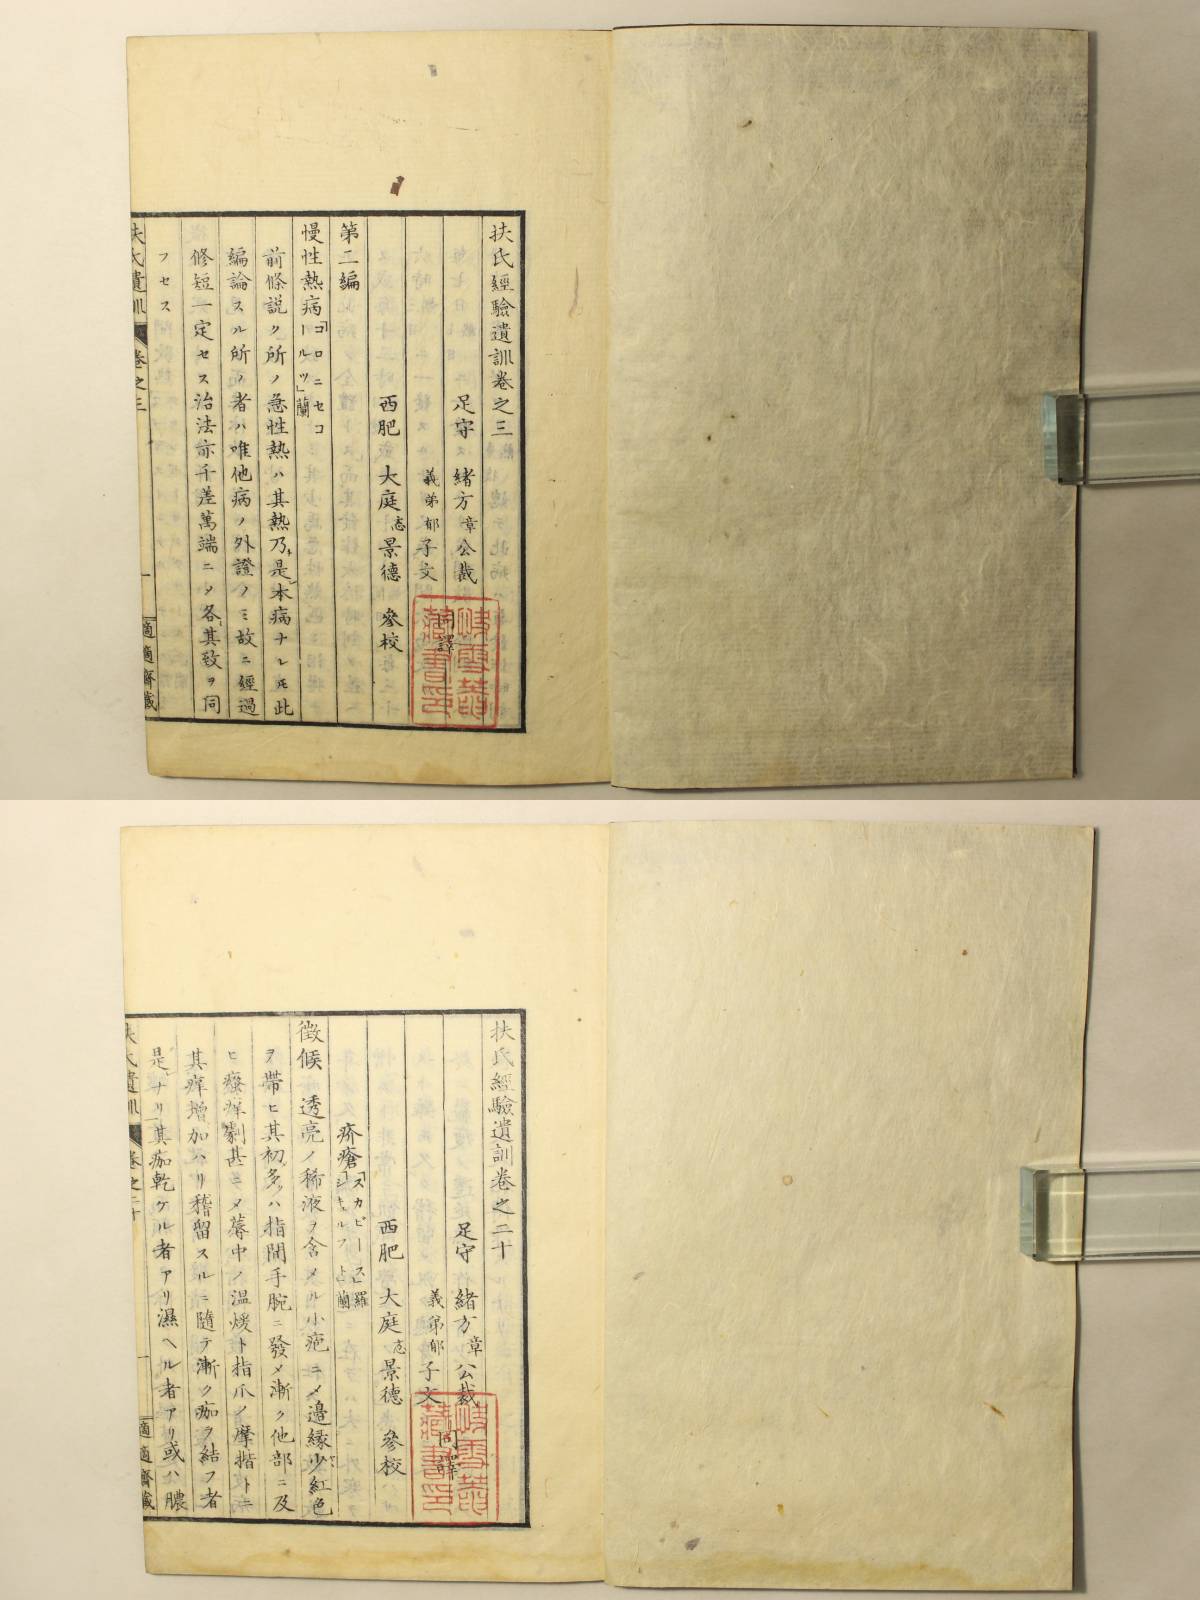 扶氏經驗遺訓卷之三
足守 緒方章公裁
義弟郁子文 譯
西肥 大庭忞景德 參校
第二編
慢性熱病「コロニセコールツ」蘭
前條説ク所ノ急性熱ハ其熱乃チ是レ本病ナレ𪜈此
編論スル所ノ者ハ唯他病ノ外證ノミ故ニ經過
修短一定セス治法亦千差萬端ニ〆各其致ヲ同
フセス
扶氏遺訓 卷之三 一 適適齋藏
扶氏經驗遺訓卷之二十
足守 緒方章公裁
義弟郁子文 同譯
西肥 大庭忞景德 參校
疥瘡「スカビース」羅「シキュルフト」蘭
徴候 透亮ノ稀液ヲ含メル小疱ニ〆邊縁少ク紅色
ヲ帶ヒ其初多クハ指間手腕ニ發〆漸ク他部ニ及
ヒ瘙痒劇甚ニ〆蓐中ノ温煖ト指爪ノ摩揩トニ
其痒增加ハリ稽留スルニ隨テ漸ク痂ヲ結フ者
是ナリ其痂乾ケル者アリ濕ヘル者アリ或ハ膿
扶氏遺訓 卷之二十 一 適適齋藏